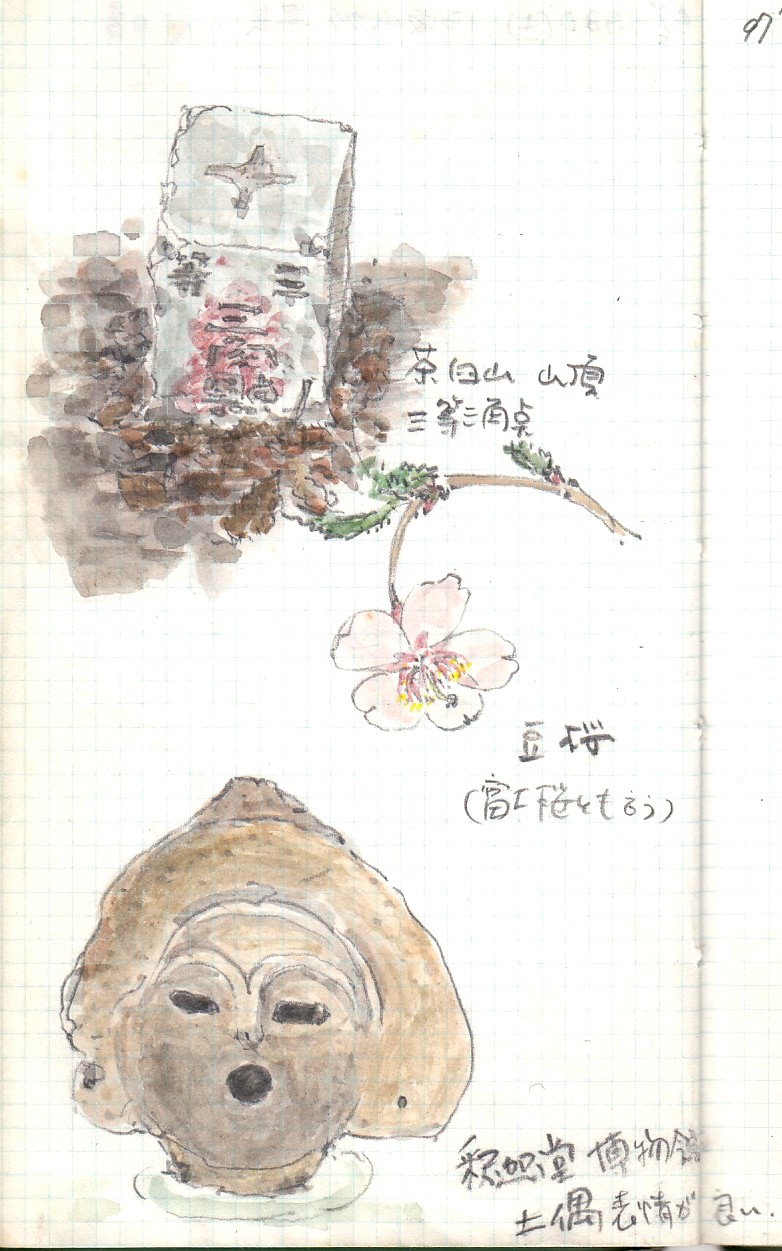 97
三等
三角点
茶臼山 山頂
三等三角点
豆桜
(富士桜とも言う)
釈迦堂 博物館
土偶 表情が良い.